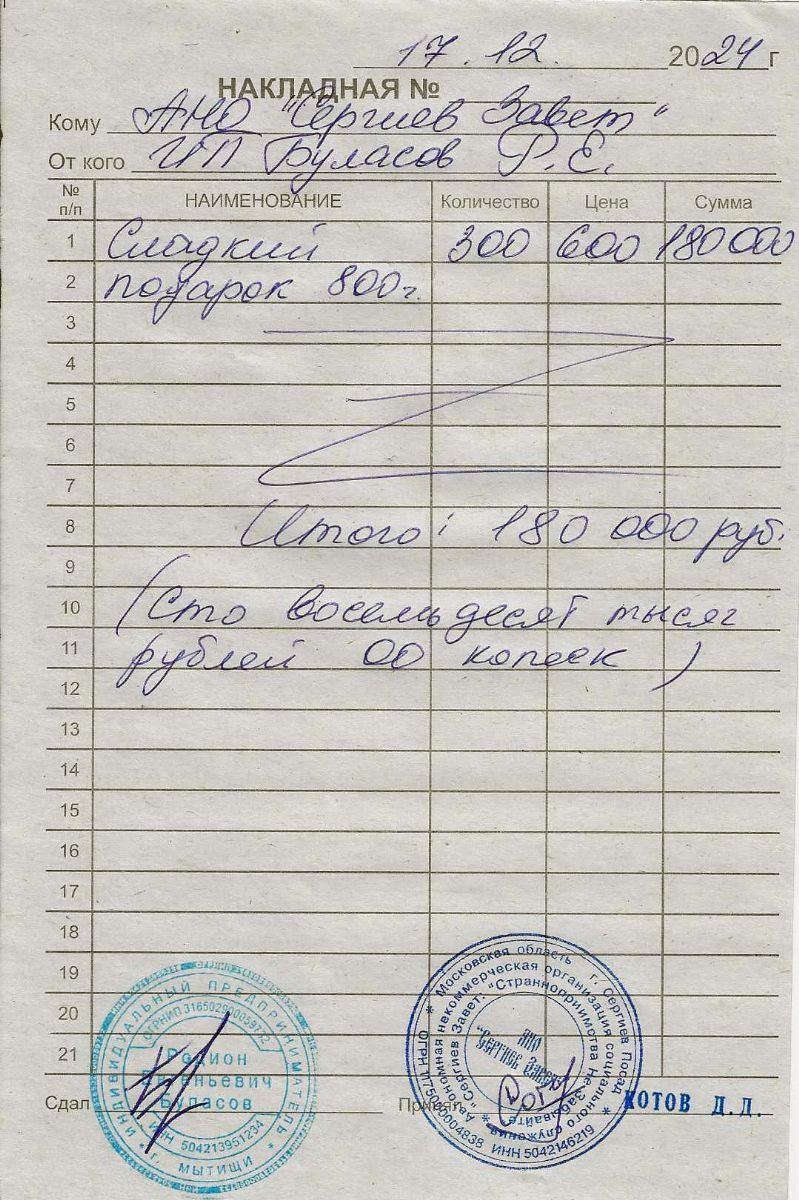 17.12. 2024 г
НАКЛАДНАЯ №
Кому АНО "Сергиев Завет"
От кого ИП Буласов Р.Е.
№ п/п НАИМЕНОВАНИЕ Количество Цена Сумма
1 Сладкий 300 600 180 000
2 подарок 800г.
3
4
5
6
7
8 Итого: 180 000 руб.
9
10 (Сто восемьдесят тысяч
11 рублей 00 копеек)
12
13
14
15
16
17
18
19
20
21
Сдал
Принял
КОТОВ Д.Д.
ИНДИВИДУАЛЬНЫЙ ПРЕДПРИНИМАТЕЛЬ
Родион
Евгеньевич
Буласов
ИНН 504213951234
* г. МЫТИЩИ *
* Московская область г. Сергиев Посад
Автономная некоммерческая организация социального служения
"Сергиев Завет: "Странноприимства Не Забывайте"
АНО
"Сергиев Завет"
ИНН 5042146219